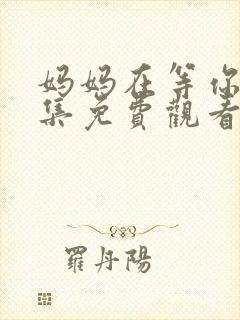 妈妈在等你
集免費觀看
羅丹陽